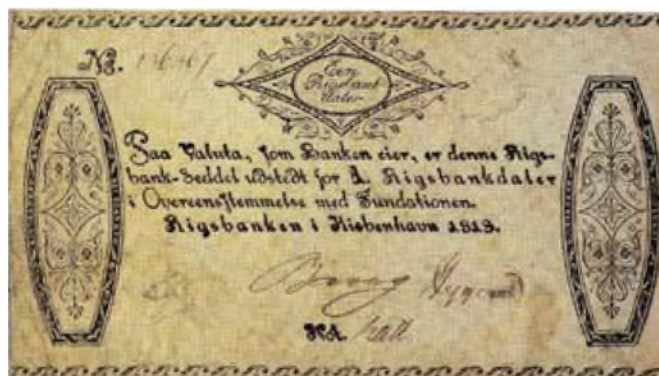 No.
Een
Rigsbank
daler
Paa Valuta, som Banken eier, er denne Rigs-
bank-Seddel udstedt for 1. Rigsbankdaler
i Overeensstemmelse med Fundationen.
Rigsbanken i Kiøbenhavn 1813.
Not.